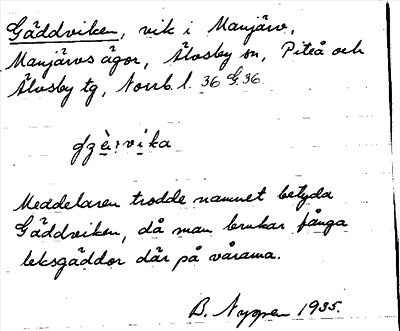 Gäddviken, vik i Manjärv,
Manjärvs ägor, Älvsby sn, Piteå och
Älvsby tg, Norrb. l. 36 G. 36
Meddelaren trodde namnet betyda
Gäddviken, då man brukar fånga
leksgäddor där på vårarna.
B. Nyppen 1935.